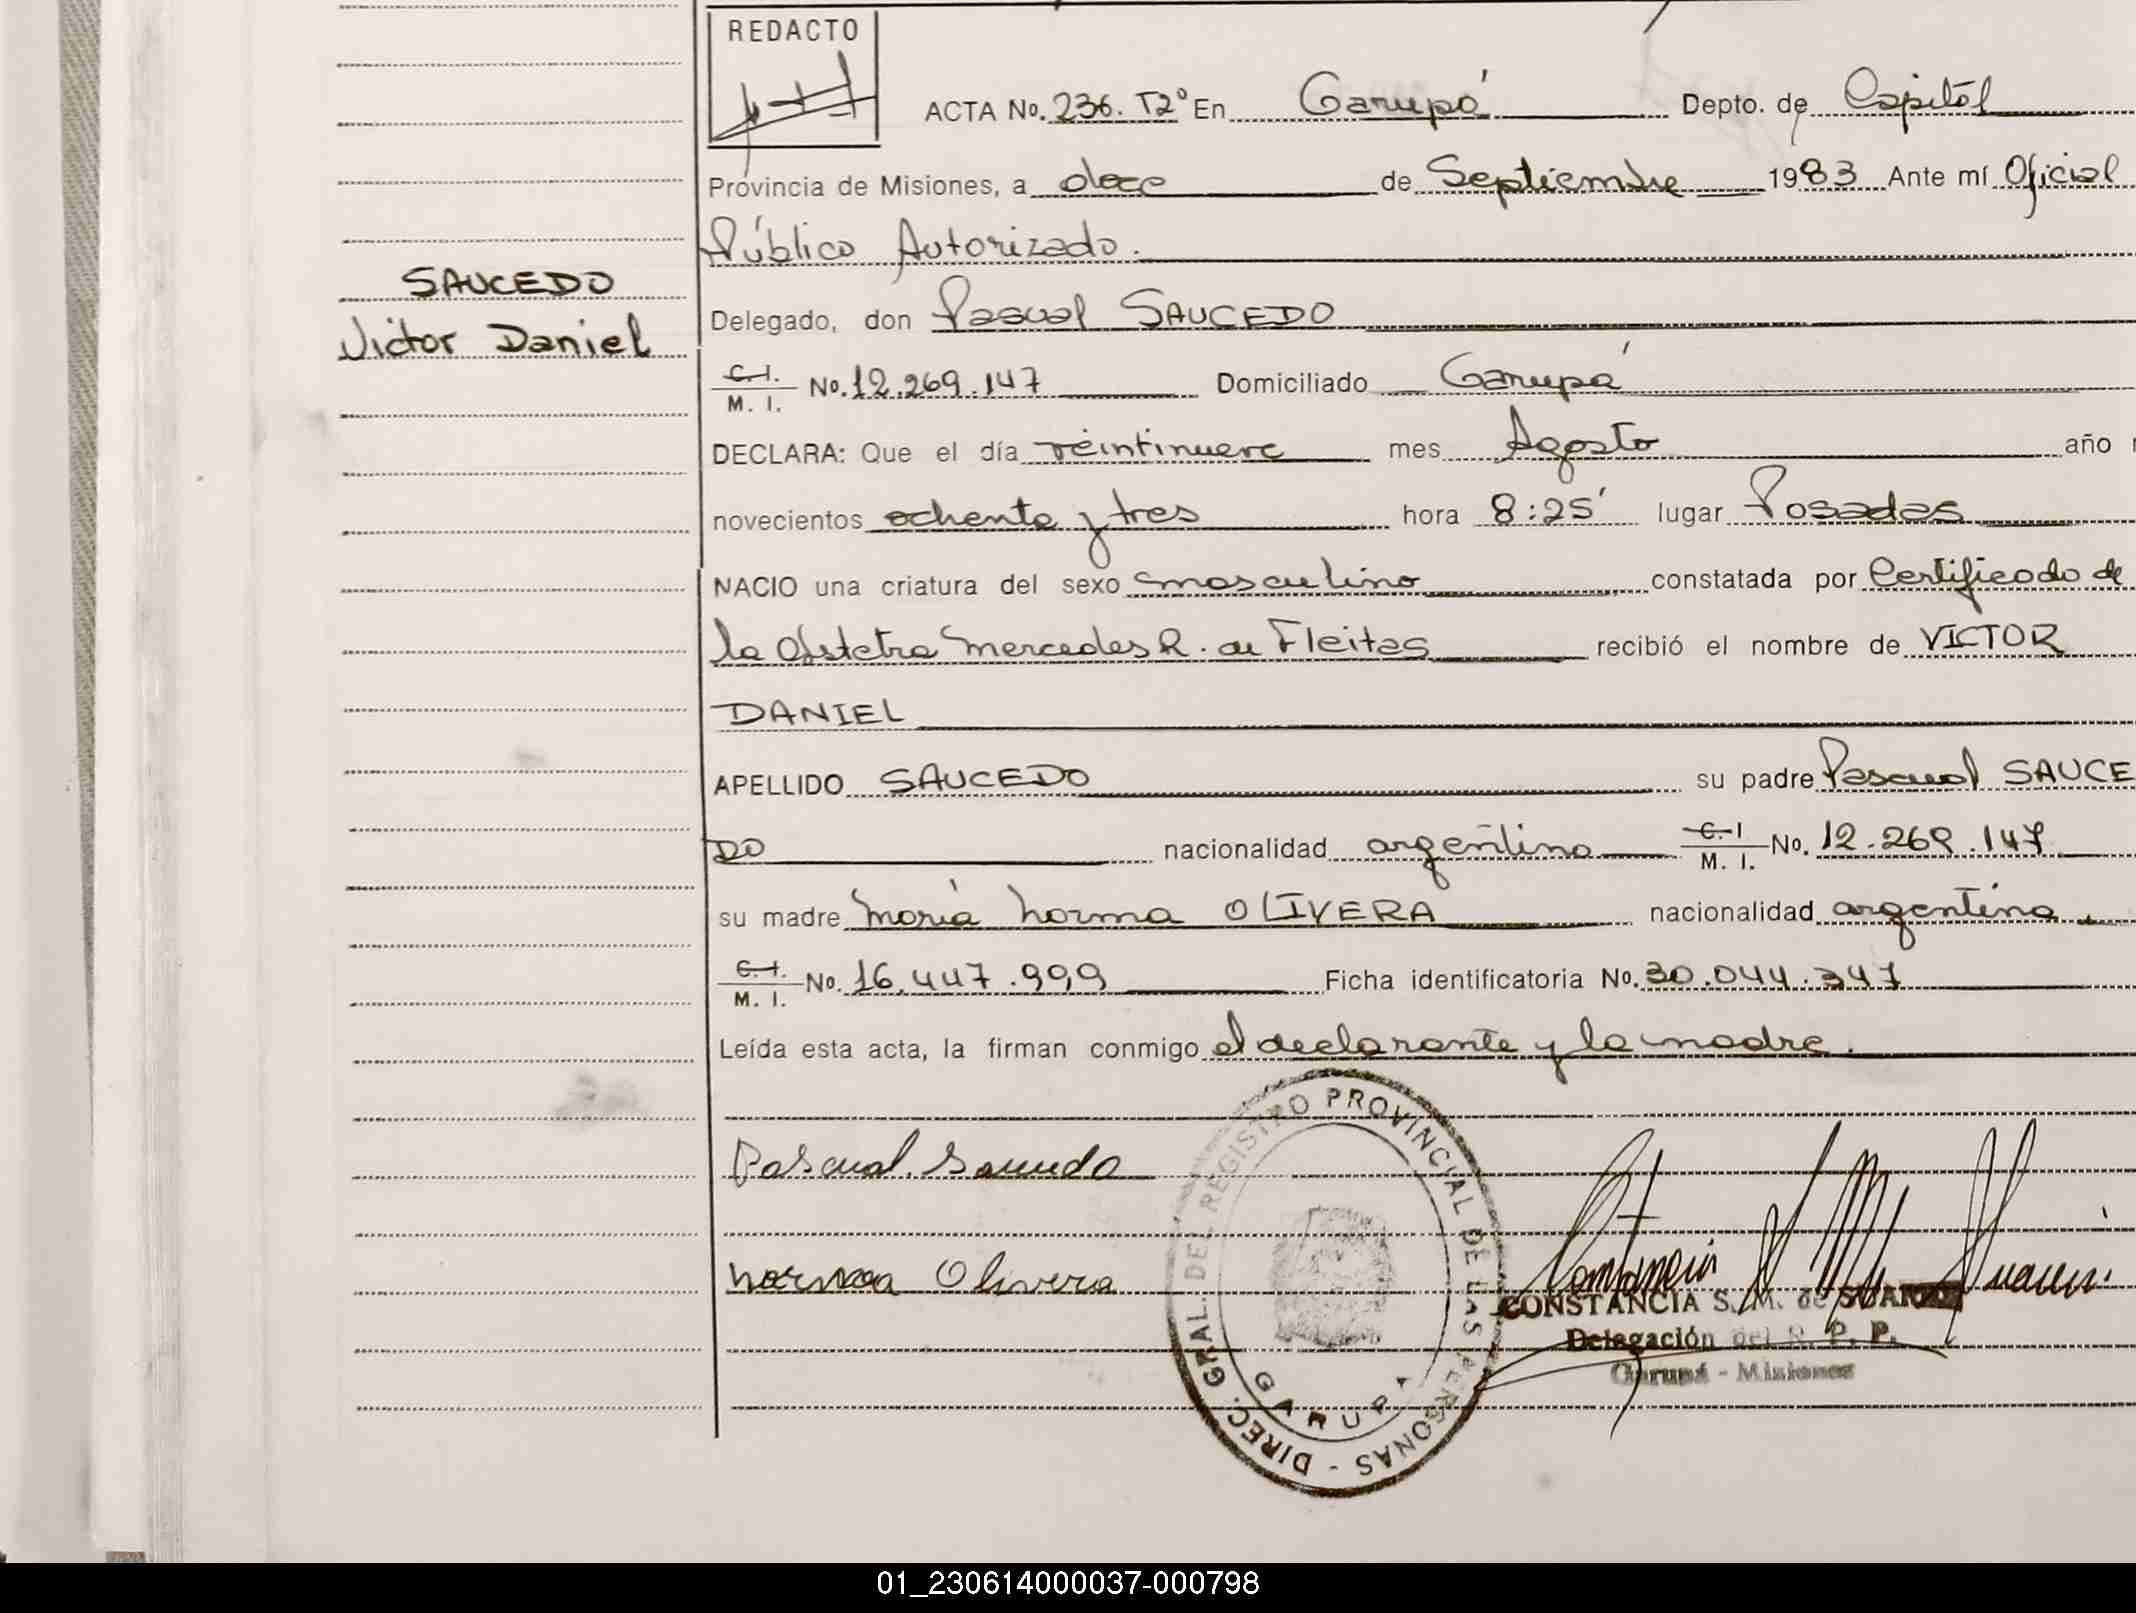 REDACTO
ACTA No. 236. T2° En Garupá Depto. de Capital
Provincia de Misiones, a doce de Septiembre 1983 Ante mí Oficial
Público Autorizado.
SAUCEDO
Victor Daniel
Delegado, don Pascual SAUCEDO
C.I. M. I. No. 12.269.147 Domiciliado Garupá
DECLARA: Que el día veintinueve mes Agosto año
novecientos ochenta y tres hora 8:25' lugar Posadas
NACIO una criatura del sexo masculino constatada por Certificado de
la Obstetra Mercedes R. de Fleitas recibió el nombre de VICTOR
DANIEL
APELLIDO SAUCEDO su padre Pascual SAUCE
DO nacionalidad argentino C.I M. I. No. 12.269.147
su madre María Norma OLIVERA nacionalidad argentina.
C.I. M. I. No. 16.447.999 Ficha identificatoria No. 30.044.347
Leída esta acta, la firman conmigo el declarante y la madre.
Pascual. Saucedo
Norma Olivera
DIREC. GRAL. DEL REGISTRO PROVINCIAL DE LAS PERSONAS -
GARUPA
CONSTANCIA S. M. de SUAREZ
Delegación del R. P. P.
Garupá - Misiones
01_230614000037-000798